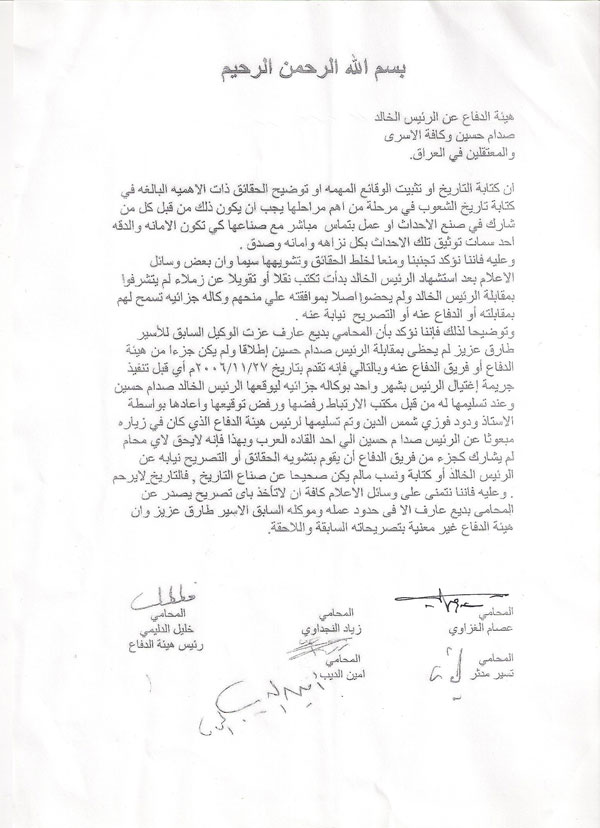 بسم الله الرحمن الرحيم
هيئة الدفاع عن الرئيس الخالد
صدام حسين وكافة الاسرى
والمعتقلين في العراق.
ان كتابة التاريخ او تثبيت الوقائع المهمه او توضيح الحقائق ذات الاهميه البالغه في
كتابة تاريخ الشعوب في مرحلة من اهم مراحلها يجب ان يكون ذلك من قبل كل من
شارك في صنع الاحداث او عمل بتماس مباشر مع صناعها كي تكون الامانه والدقه
احد سمات توثيق تلك الاحداث بكل نزاهه وامانه وصدق .
وعليه فاننا نؤكد تجنبنا ومنعا لخلط الحقائق وتشويهها سيما وان بعض وسائل
الاعلام بعد استشهاد الرئيس الخالد بدأت تكتب نقلا أو تقويلا عن زملاء لم يتشرفوا
بمقابلة الرئيس الخالد ولم يحضوا اصلا بموافقته علي منحهم وكاله جزائيه تسمح لهم
بمقابلته أو الدفاع عنه أو التصريح نيابة عنه .
وتوضيحا لذلك فإننا نؤكد بأن المحامي بديع عارف عزت الوكيل السابق للأسير
طارق عزيز لم يحظى بمقابلة الرئيس صدام حسين إطلاقا ولم يكن جزءا من هيئة
الدفاع أو فريق الدفاع عنه وبالتالي فإنه تقدم بتاريخ ٢٠٠٦/١١/٢٧م أي قبل تنفيذ
جريمة إغتيال الرئيس بشهر واحد بوكاله جزائيه ليوقعها الرئيس الخالد صدام حسين
وعند تسليمها له من قبل مكتب الارتباط رفضها ورفض توقيعها واعادها بواسطة
الاستاذ ودود فوزي شمس الدين وتم تسليمها لرئيس هيئة الدفاع الذي كان في زياره
مبعوثا عن الرئيس صدام حسين الي احد القاده العرب وبهذا فإنه لايحق لاي محام
لم يشارك كجزء من فريق الدفاع أن يقوم بتشويه الحقائق أو التصريح نيابه عن
الرئيس الخالد أو كتابة ونسب مالم يكن صحيحا عن صناع التاريخ , فالتاريخ لايرحم
. وعليه فاننا نتمنى على وسائل الاعلام كافة ان لاتأخذ باى تصريح يصدر عن
المحامى بديع عارف الا فى حدود عمله وموكله السابق الاسير طارق عزيز وان
هيئة الدفاع غير معنية بتصريحاته السابقة واللاحقة.
المحامي المحامي المحامي
عصام الغزاوي زياد النجداوي خليل الدليمي
رئيس هيئة الدفاع
المحامي المحامي
تسير مدثر امين الديب